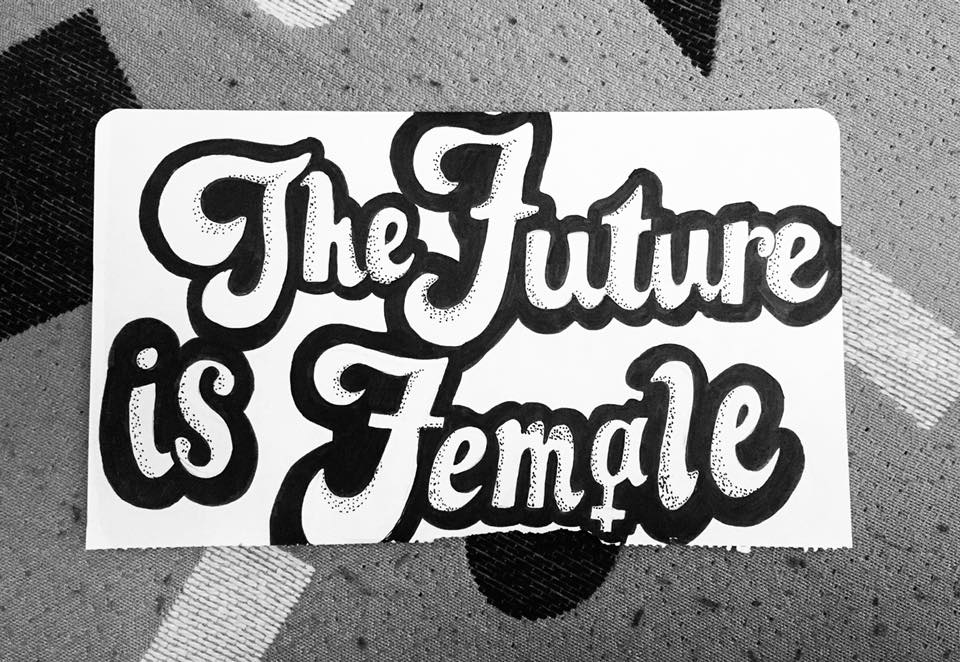 The Future
is Female